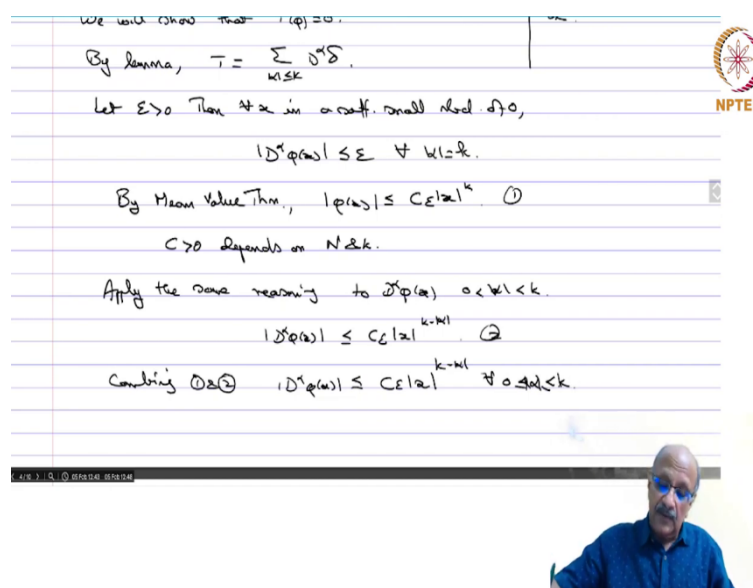 We will show that T(φ)=0.
By lemma, T = Σ_{|α|≤k} D^α δ.
Let ε>0 Then ∀ x in a suff. small nbd. of 0,
|D^α φ(x)| ≤ ε ∀ |α|=k.
By Mean Value Thm., |φ(x)| ≤ Cε|x|^k. ①
C>0 depends on N & k.
Apply the same reasoning to D^α φ(x) 0<|α|<k.
|D^α φ(x)| ≤ Cε|x|^{k-|α|} ②
Combining ①&② |D^α φ(x)| ≤ Cε|x|^{k-|α|} ∀ 0≤|α|<k.
NPTE
4/10 05 Feb 12:43 05 Feb 12:48